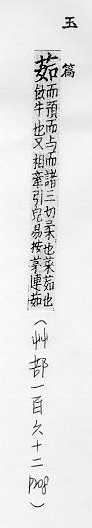 玉篇
茹
而預而与而諸三切柔也菜茹也
飯牛也又相牽引皃易拔茅連茹
(艸部一百六十二 p208)